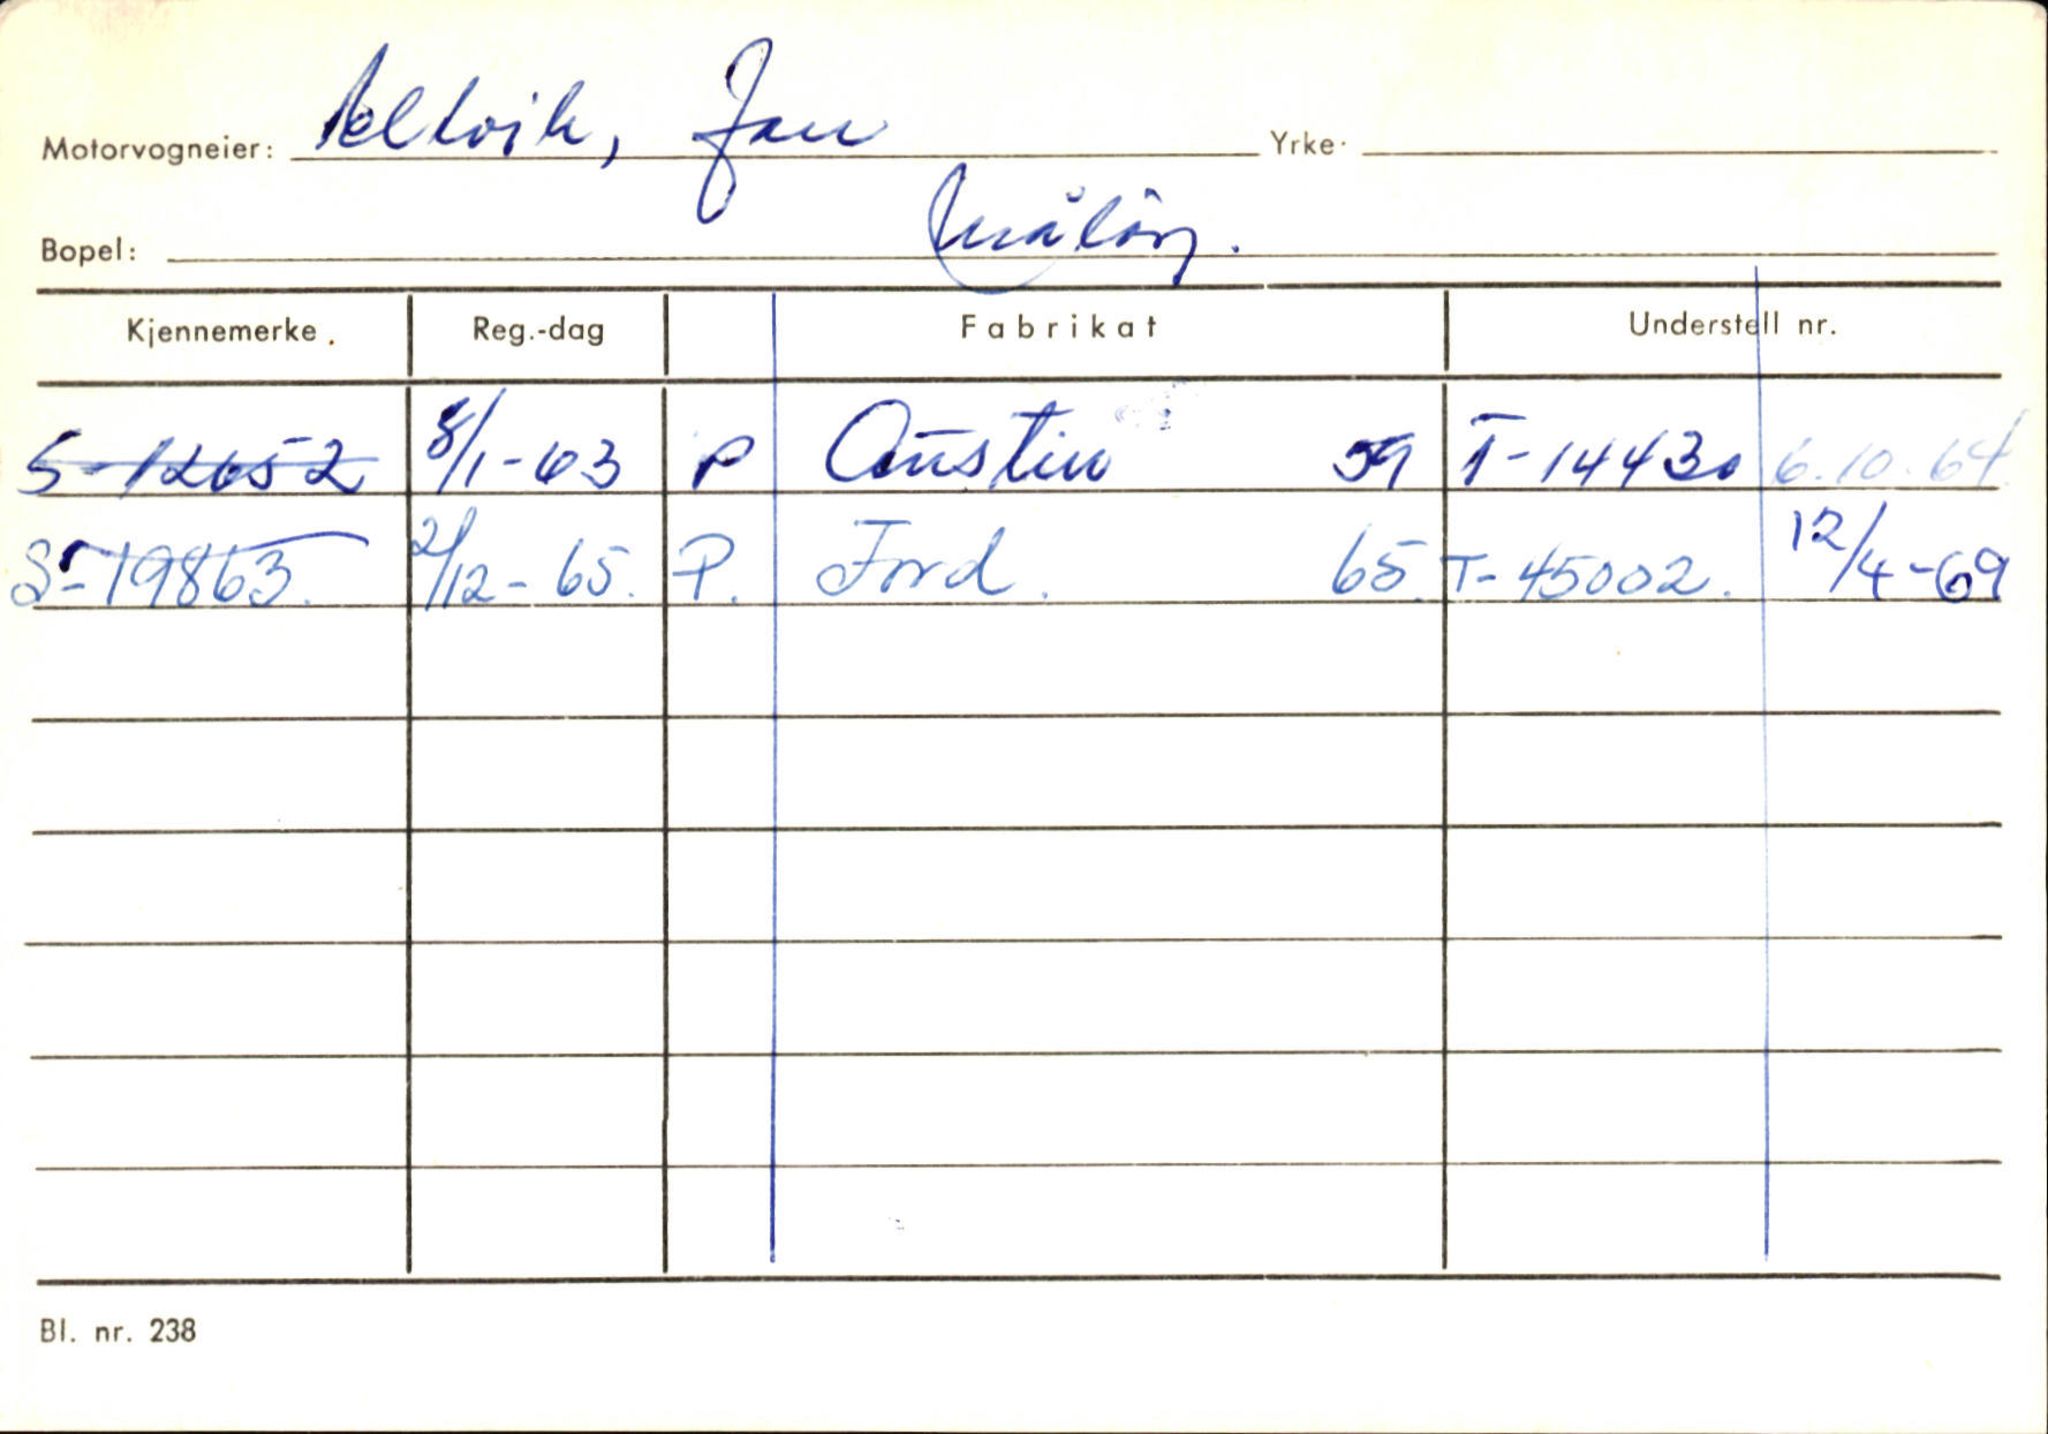 Motorvogneier: Jan Yrke.
Bopel: Måløy.
Kjennemerke. Reg.-dag Fabrikat Understell nr.
S-12652 8/1-63 P Austin 59 T-14430 6.10.64
S-19863. 2/12-65. P. Ford. 65. T-45002. 12/4-69
Bl. nr. 238